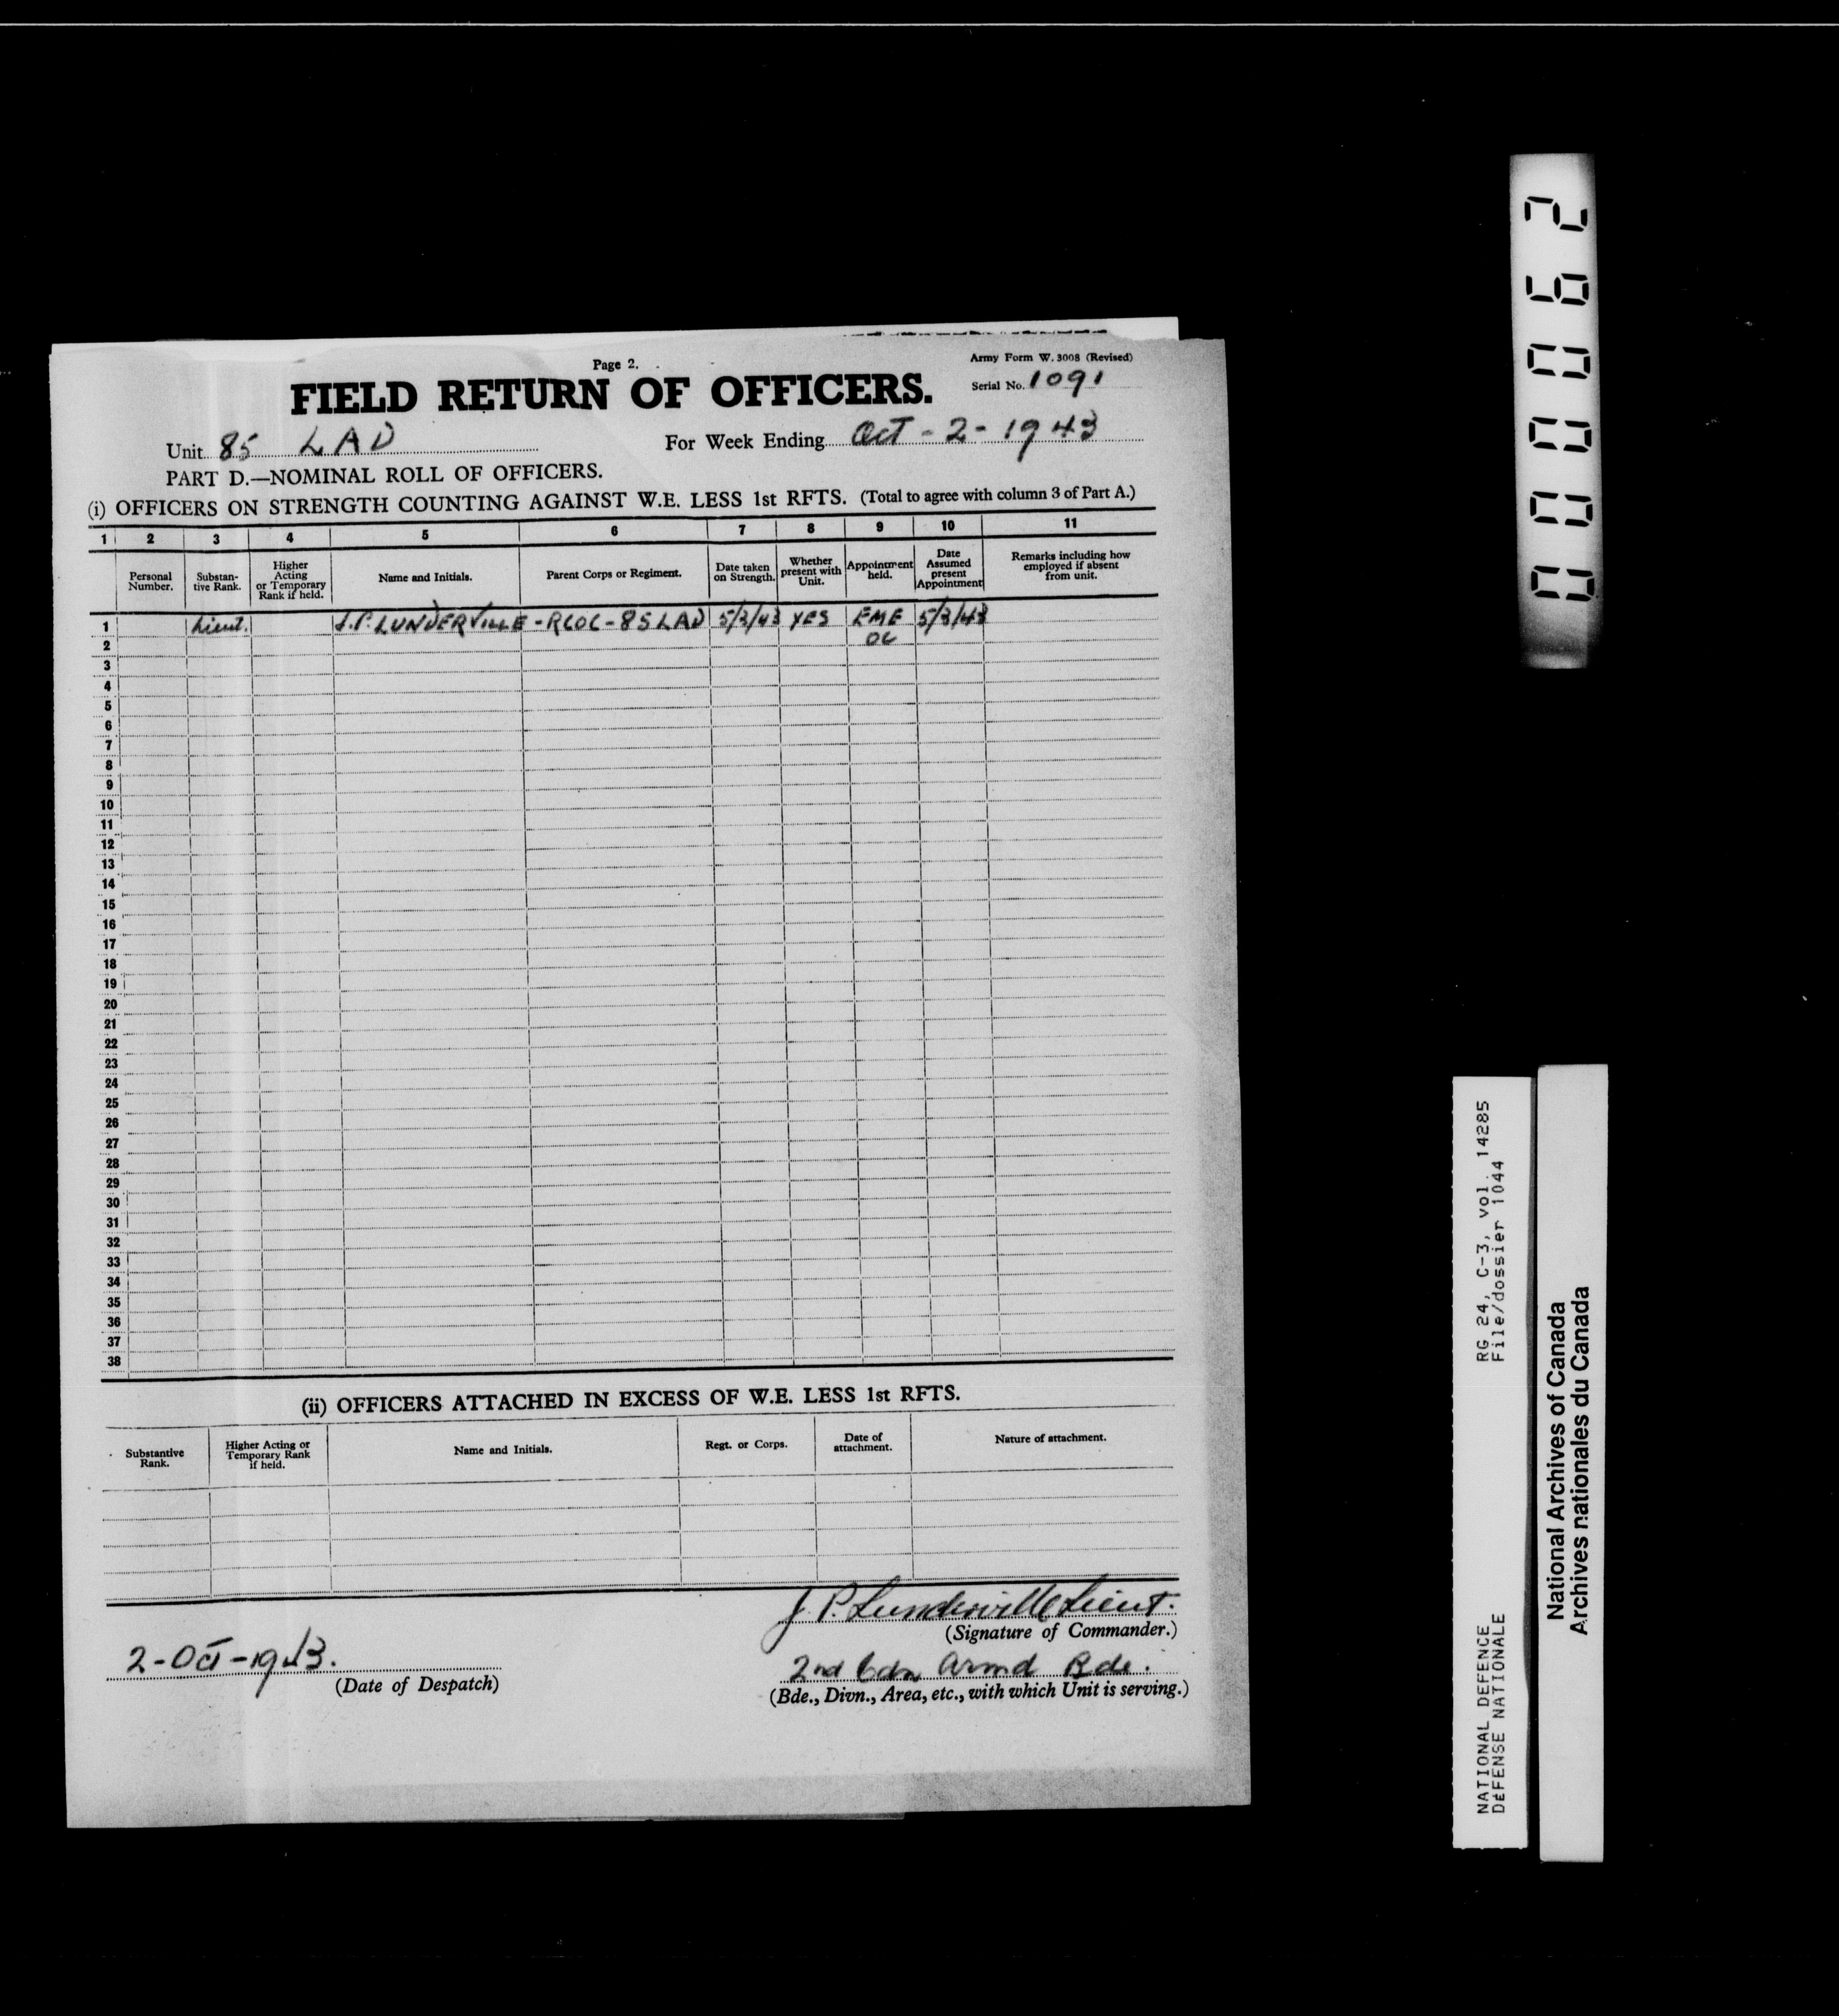 Page 2.
Army Form W. 3008 (Revised)
FIELD RETURN OF OFFICERS.
Serial No. 1091
Unit 85 LAD For Week Ending Oct - 2 - 1943
PART D.—NOMINAL ROLL OF OFFICERS.
(i) OFFICERS ON STRENGTH COUNTING AGAINST W.E. LESS 1st RFTS. (Total to agree with column 3 of Part A.)
1 2 3 4 5 6 7 8 9 10 11
Personal Number. Substan-tive Rank. Higher Acting or Temporary Rank if held. Name and Initials. Parent Corps or Regiment. Date taken on Strength. Whether present with Unit. Appointment held. Date Assumed present Appointment Remarks including how employed if absent from unit.
1 Lieut. J.P. LUNDERVILLE - RCOC - 85 LAD 5/3/43 YES EME 5/3/43
2 OC
3
4
5
6
7
8
9
10
11
12
13
14
15
16
17
18
19
20
21
22
23
24
25
26
27
28
29
30
31
32
33
34
35
36
37
38
(ii) OFFICERS ATTACHED IN EXCESS OF W.E. LESS 1st RFTS.
Substantive Rank. Higher Acting or Temporary Rank if held. Name and Initials. Regt. or Corps. Date of attachment. Nature of attachment.
J. P. Lunderville Lieut.
(Signature of Commander.)
2-Oct-1943.
(Date of Despatch)
2nd Cdn Armd Bde.
(Bde., Divn., Area, etc., with which Unit is serving.)
000062
NATIONAL DEFENCE RG 24, C-3, vol. 14285
DÉFENSE NATIONALE File/dossier 1044
National Archives of Canada
Archives nationales du Canada